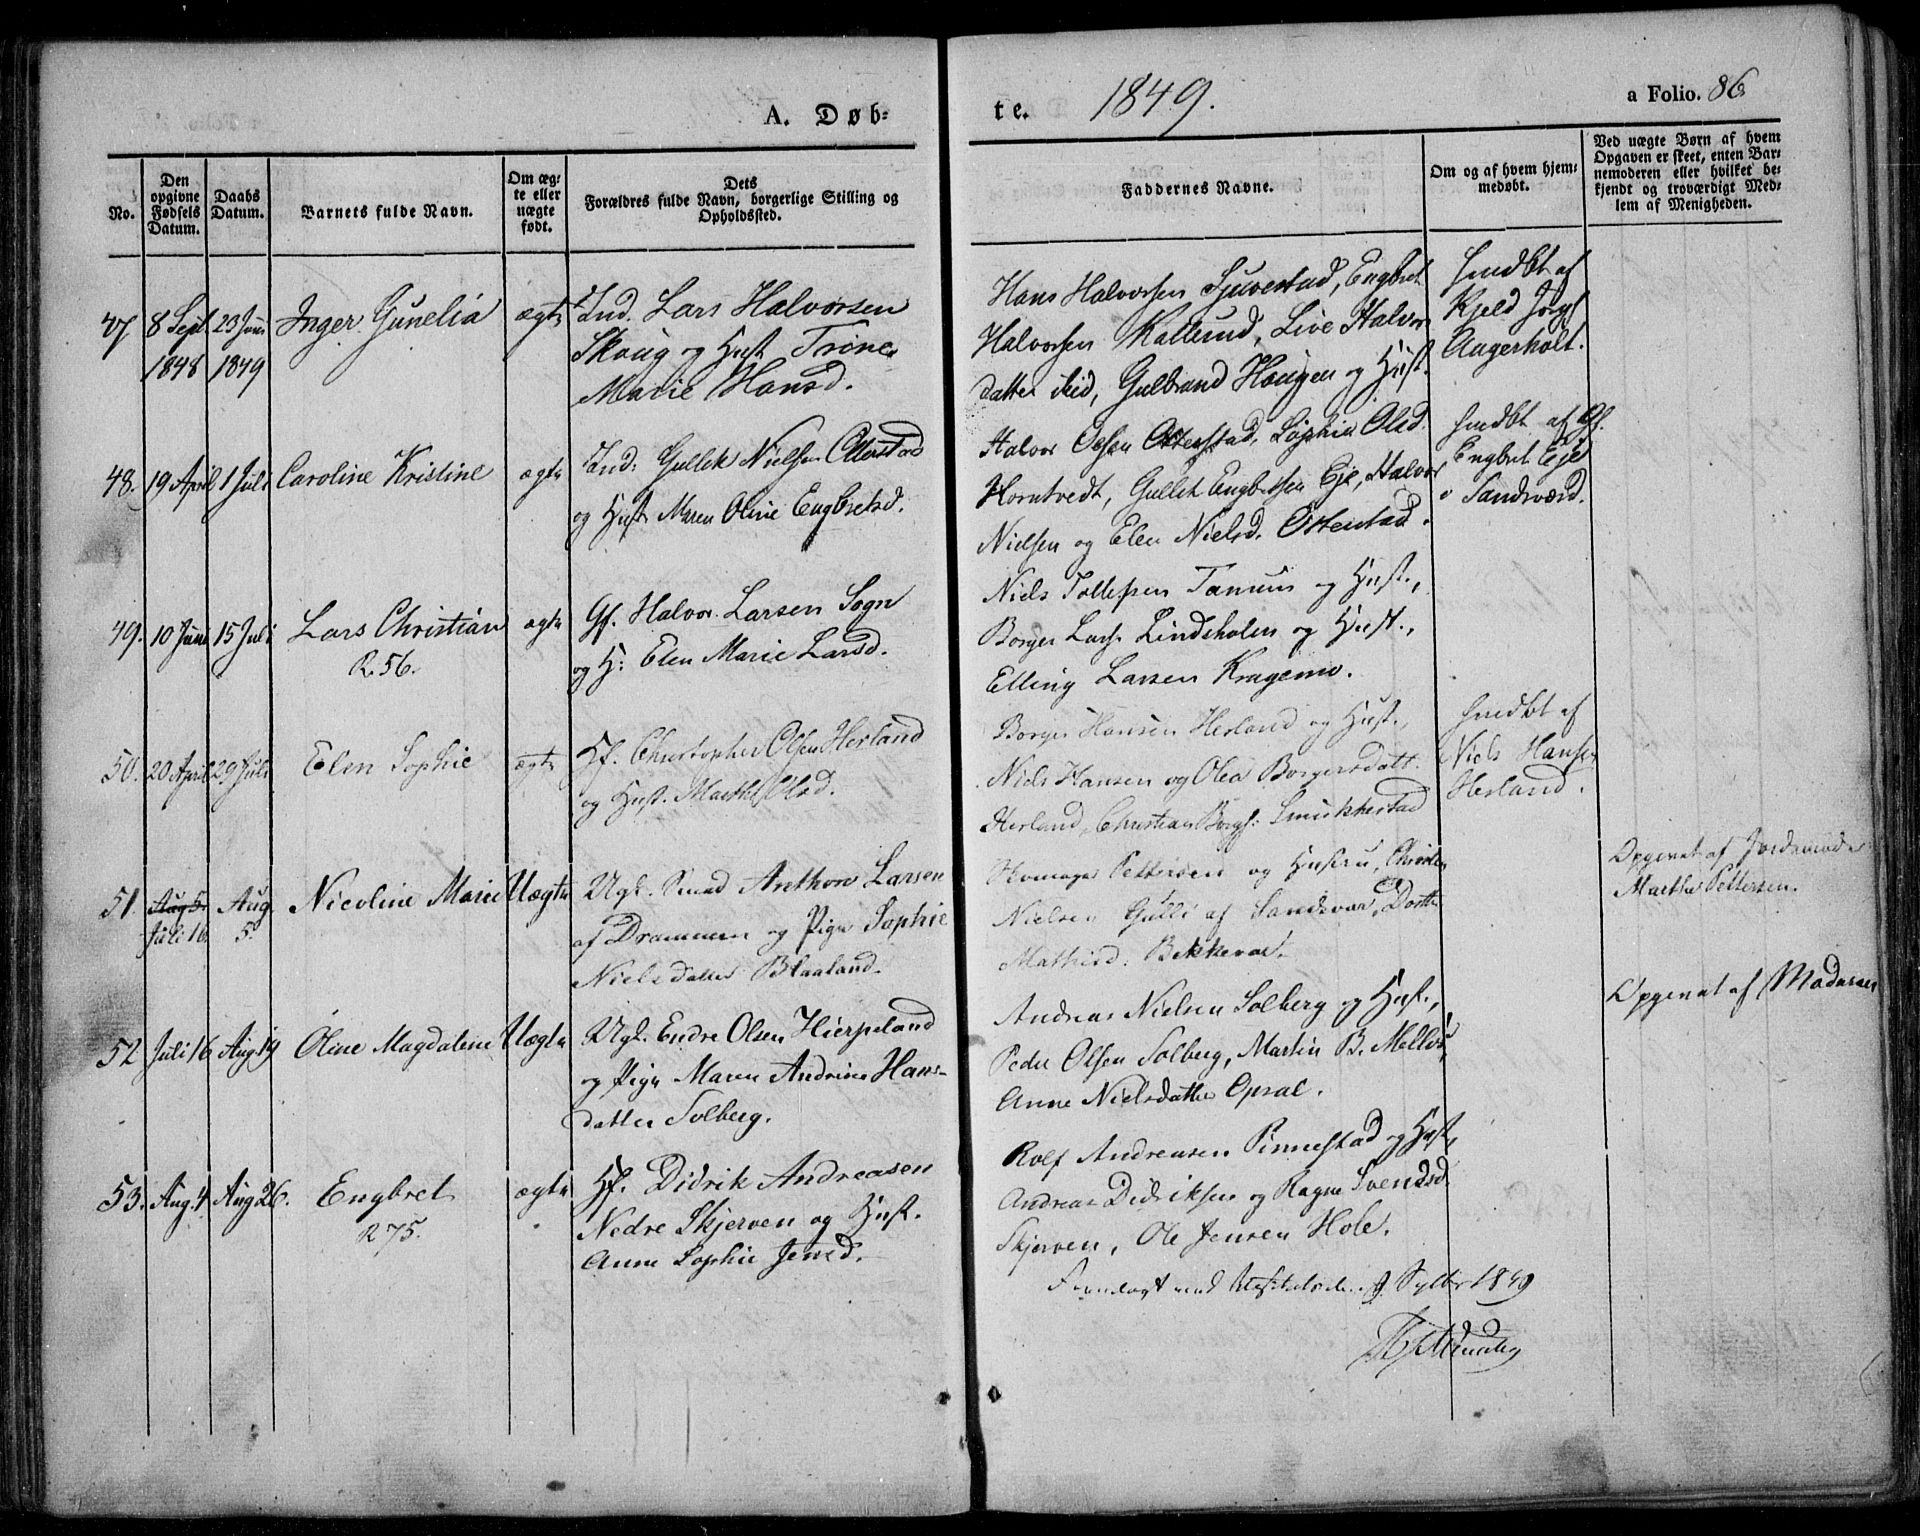 A. Døb-
te. 1849.
a Folio. 86
No.
Den
opgivne
Fødsels
Datum.
Daabs
Datum.
Barnets fulde Navn.
Om æg-
te eller
uægte
født.
Dets
Forældres fulde Navn, borgerlige Stilling og
Opholdssted.
Faddernes Navne.
Om og af hvem hjem-
medøbt.
Ved uægte Børn af hvem
Opgaven er skeet, enten Bar-
nemoderen eller hvilket be-
kjendt og troværdigt Med-
lem af Menigheden.
47 8 Sept 23 Juni Inger Gunelia ægte Ind. Lars Halvorsen
1848 1849 Skoug og Hust Trine
Marie Hansd.
Hans Halvorsen Sjuvestad, Engbret
Halvorsen Kallerud, Live Halvors
datter ibid, Gulbrand Haugen og Hust.
Hmdbt af
Kjeld Jørgs
Augerholt.
48. 19 April 1 Juli Caroline Kristine ægte Ind: Gullik Nielsen Otterstad
og Hust Maren Oline Engbretsd.
Halvor Olsen Otterstad, Sophie Olsd.
Horntvedt, Gullik Engbretsen Eje, Halvor
Nielsen og Elen Nielsd. Otterstad.
Hmdbt af Gf.
Engbret Eje
i Sandsværd.
49. 10 Juni 15 Juli Lars Christian ægte Gf. Halvor Larsen Sogn
R. 56. og H: Elen Marie Larsd.
Niels Tollefsen Tamun og Hust.,
Borger Lars. Lindsholen og Hust.,
Elling Larsen Kragemo.
50. 20 April 29 Juli Elen Sophie ægte Hf. Christopher Olsen Herland
og Hust. Marthe Olsd.
Borger Hansen Herland og Hust.,
Niels Hansen og Olea Borgersdatt.
Herland, Christian Borgs: Smukkestad
Hmdbt af
Niels Hansen
Herland.
51. Aug 5. Aug Nicoline Marie Uægte Ugk. Smed Anthon Larsen
Juli 16 5. af Drammen og Pige Sophie
Nielsdatter Blaaland.
Pettersen og Hustru, Christen
Nielsen Gulli af Sandsvær, Dorthe
Mathisd. Bekkevar.
Opgivet af Jordemoder
Marthe Pettersen.
52 Juli 16 Aug 19 Oline Magdalene Uægte Ugk. Endre Olsen Hierpeland
og Pige Maren Andrine Hans-
datter Solberg.
Andreas Nielsen Solberg og Hust.,
Peder Olsen Solberg, Martin B. Mellos,
Anne Nielsdatter Opsal.
Opgivet af Moderen
53. Aug. 4 Aug 26. Engbret ægte Hf. Didrik Andreasen
R 75. Nedre Skjerven og Hust.
Anne Sophie Jensd.
Rolf Andreasen Pinnestad og Hust,
Andreas Didriksen og Ragne Svendsd.
Skjerven, Ole Jensen Hole.
1849